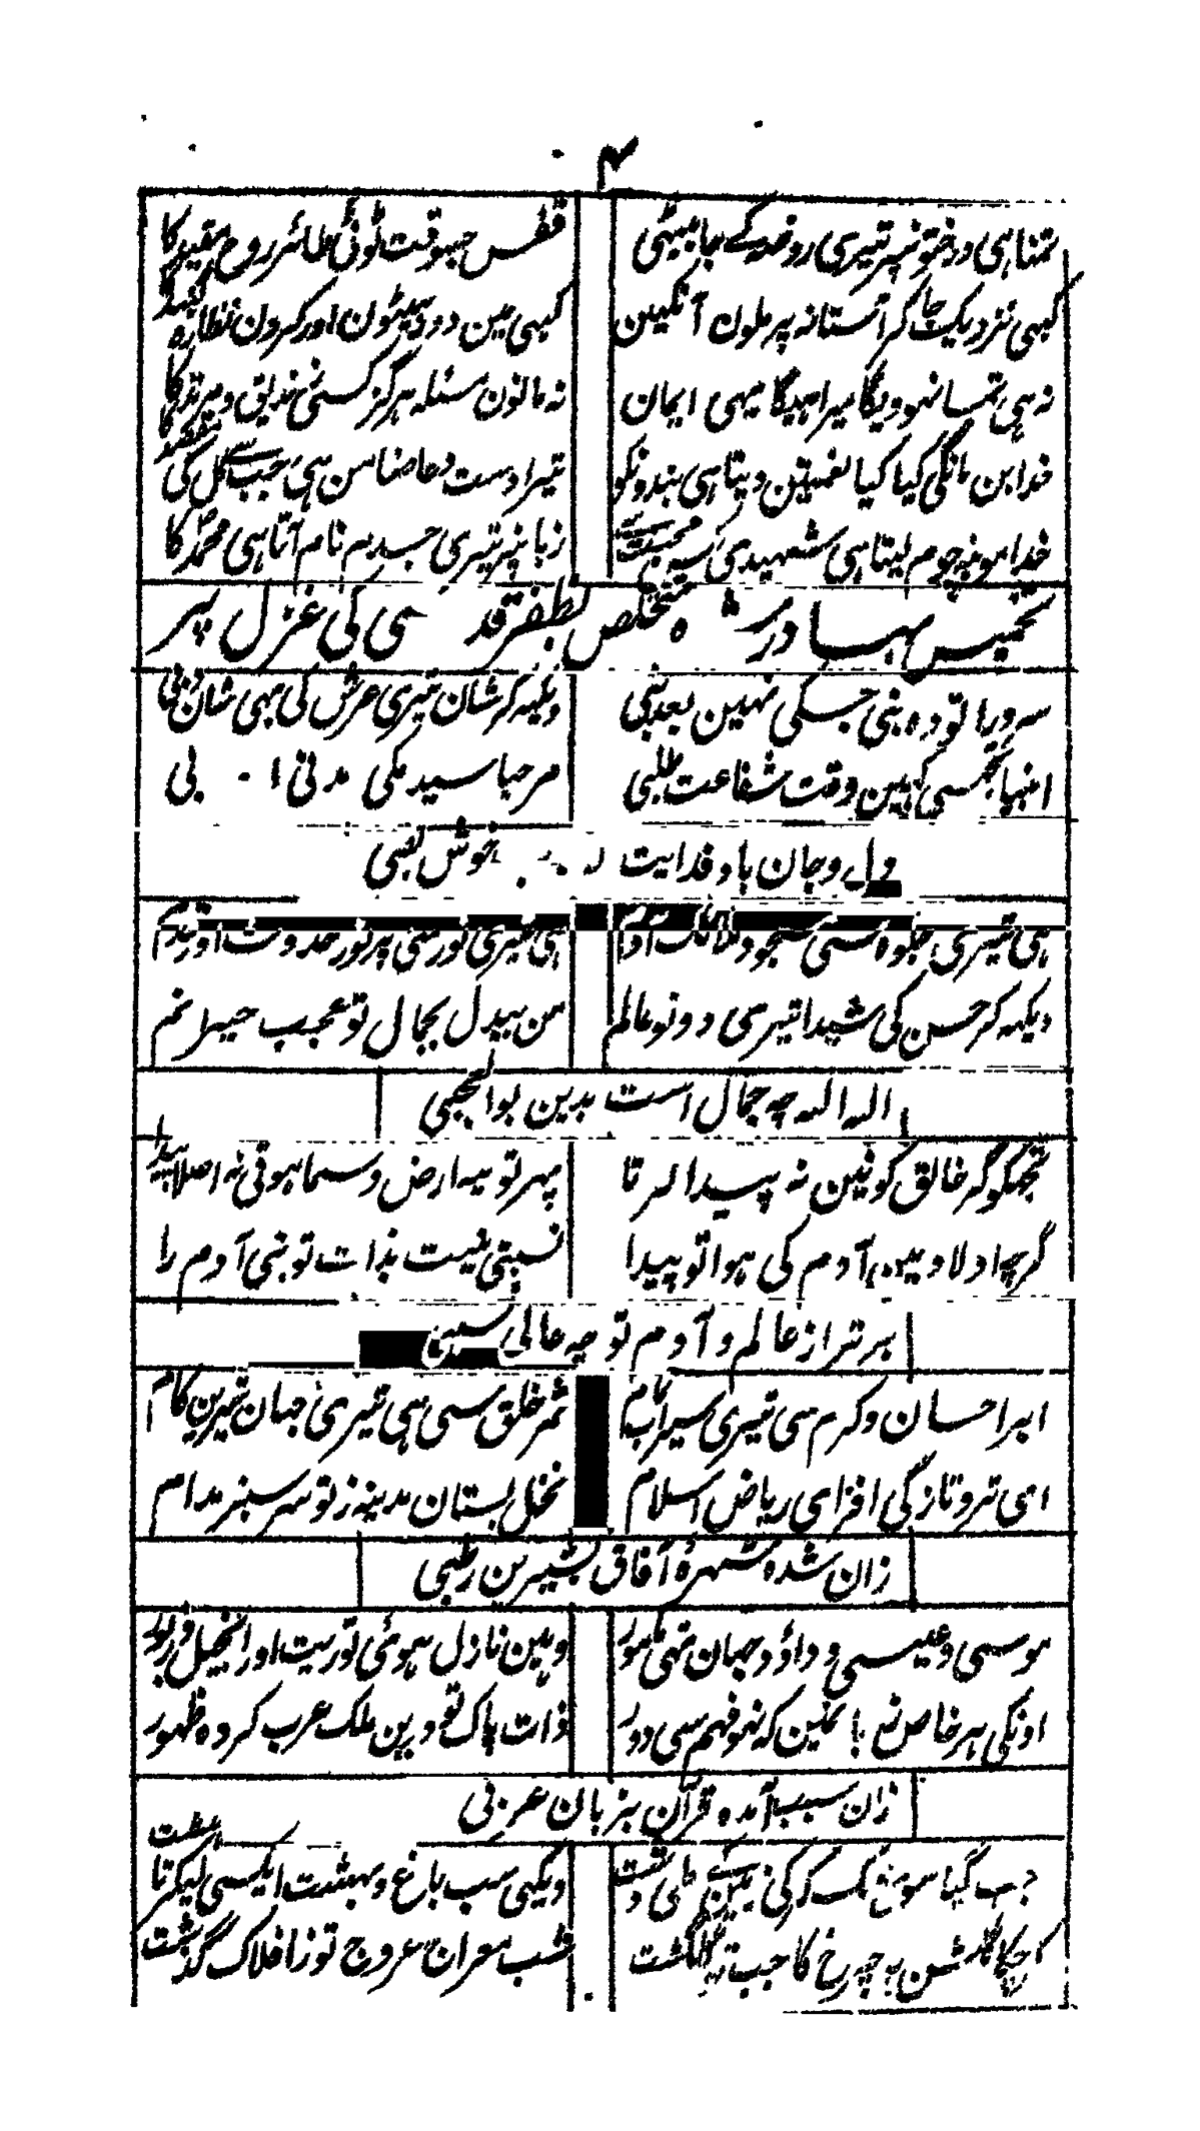 ۴
تمنا ہی درختونپر تیری روضہ کے جا بیٹھی
قفس جسوقت ٹوٹی طائر روح مقید کا
کبھی نزدیک جا کر آستانہ پر ملون آنکھین
کبھی مین دور بیٹھون اور کرون نظارہ گنبد کا
نہ مانون مسئلہ ہرگز کسی زندیق و مرتد کا
خدا بن مانگی کیا کیا نعمتین دیتا ہی بندونکو
تیرا دست دعا ضامن ہی جب سے کل کی مقصد کا
خدا مونہ چوم لیتا ہی شہیدی کس محبت سے
زبانپر تیری جسدم نام آتا ہی محمد کا
تخمیس بہادر شاہ متخلص بظفر قدسی کی غزل پر
سرورا تو وہ نبی جسکی نہین بعد نبی
دیکھہ کر شان تیری عرش کی بھی شان دبی
انبیا تجھسی کہین وقت شفاعت طلبی
مرحبا سید مکی مدنی ا بی
دل و جان باد فدایت خوش لقبی
ہی تیری جلوہ سی مسجود ملائک آدم
ہی تیری نور سی پر نور حدوث اور قدم
دیکھہ کر حسن کی شیدا تیری دونو عالم
من بیدل بجمال تو عجب حیرانم
اللہ اللہ چہ جمال است بدین بوالعجبی
تجھکو گر خالق کونین نہ پیدا کرتا
پھر تو یہ ارض و سما ہوتی نہ اصلا پیدا
گرچہ اولاد مین آدم کی ہوا تو پیدا
نسبتی نیست بذات تو بنی آدم را
برتر از عالم و آدم تو چہ عالی نسبی
ابر احسان و کرم سی تیری سیراب تمام
ثمر خلق سی ہی تیری جہان شیرین کام
ای تر و تازگی افزای ریاض اسلام
نخل بستان مدینہ ز تو سرسبز مدام
زان شدہ شہرۂ آفاق بشیرین رطبی
موسی و عیسی و داؤد جہان تھی مامور
وہین نازل ہوئی توریت اور انجیل و زبور
ذات پاک تو درین ملک عرب کردہ ظہور
زان سبب آمدہ قرآن بزبان عربی
دیکھی سب باغ بہشت
شب معراج عروج تو ز افلاک گذشت